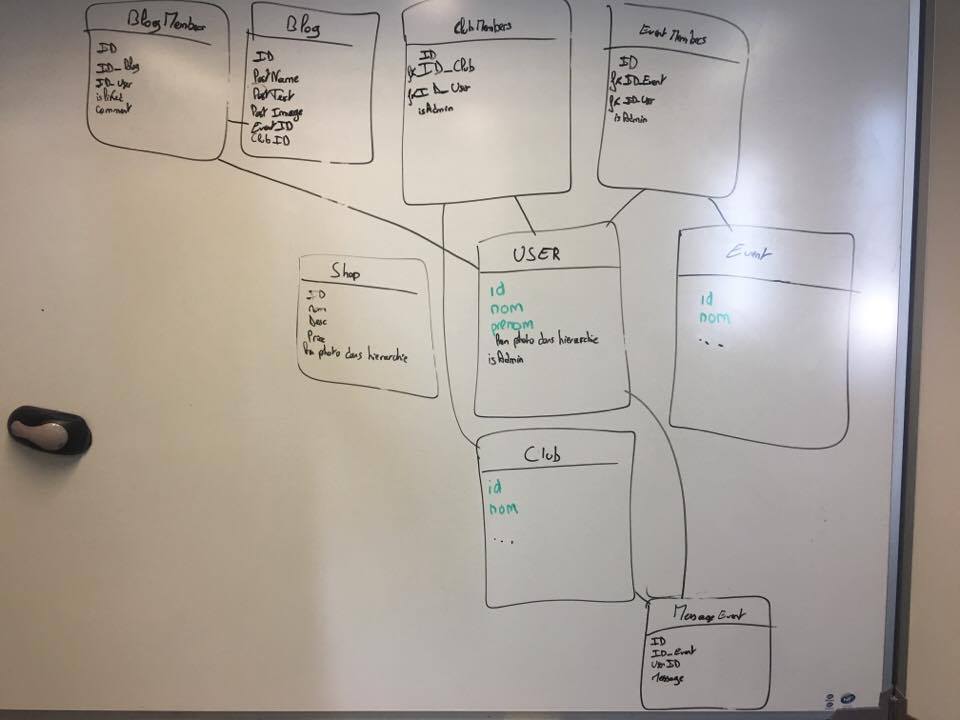 BlogMembers
ID
ID_Blog
ID_User
isLiked
comment
Blog
ID
PostName
PostText
Post Image
EventID
Club ID
ClubMembers
ID
fk ID_Club
fk ID_User
isAdmin
Event Members
ID
fk ID_Event
fk ID_User
isAdmin
Shop
ID
nom
Desc
Prix
photo dans hierarchie
USER
id
nom
prenom
photo dans hierarchie
isAdmin
Event
id
nom
...
Club
id
nom
...
Message Event
ID
ID_Event
User ID
Message